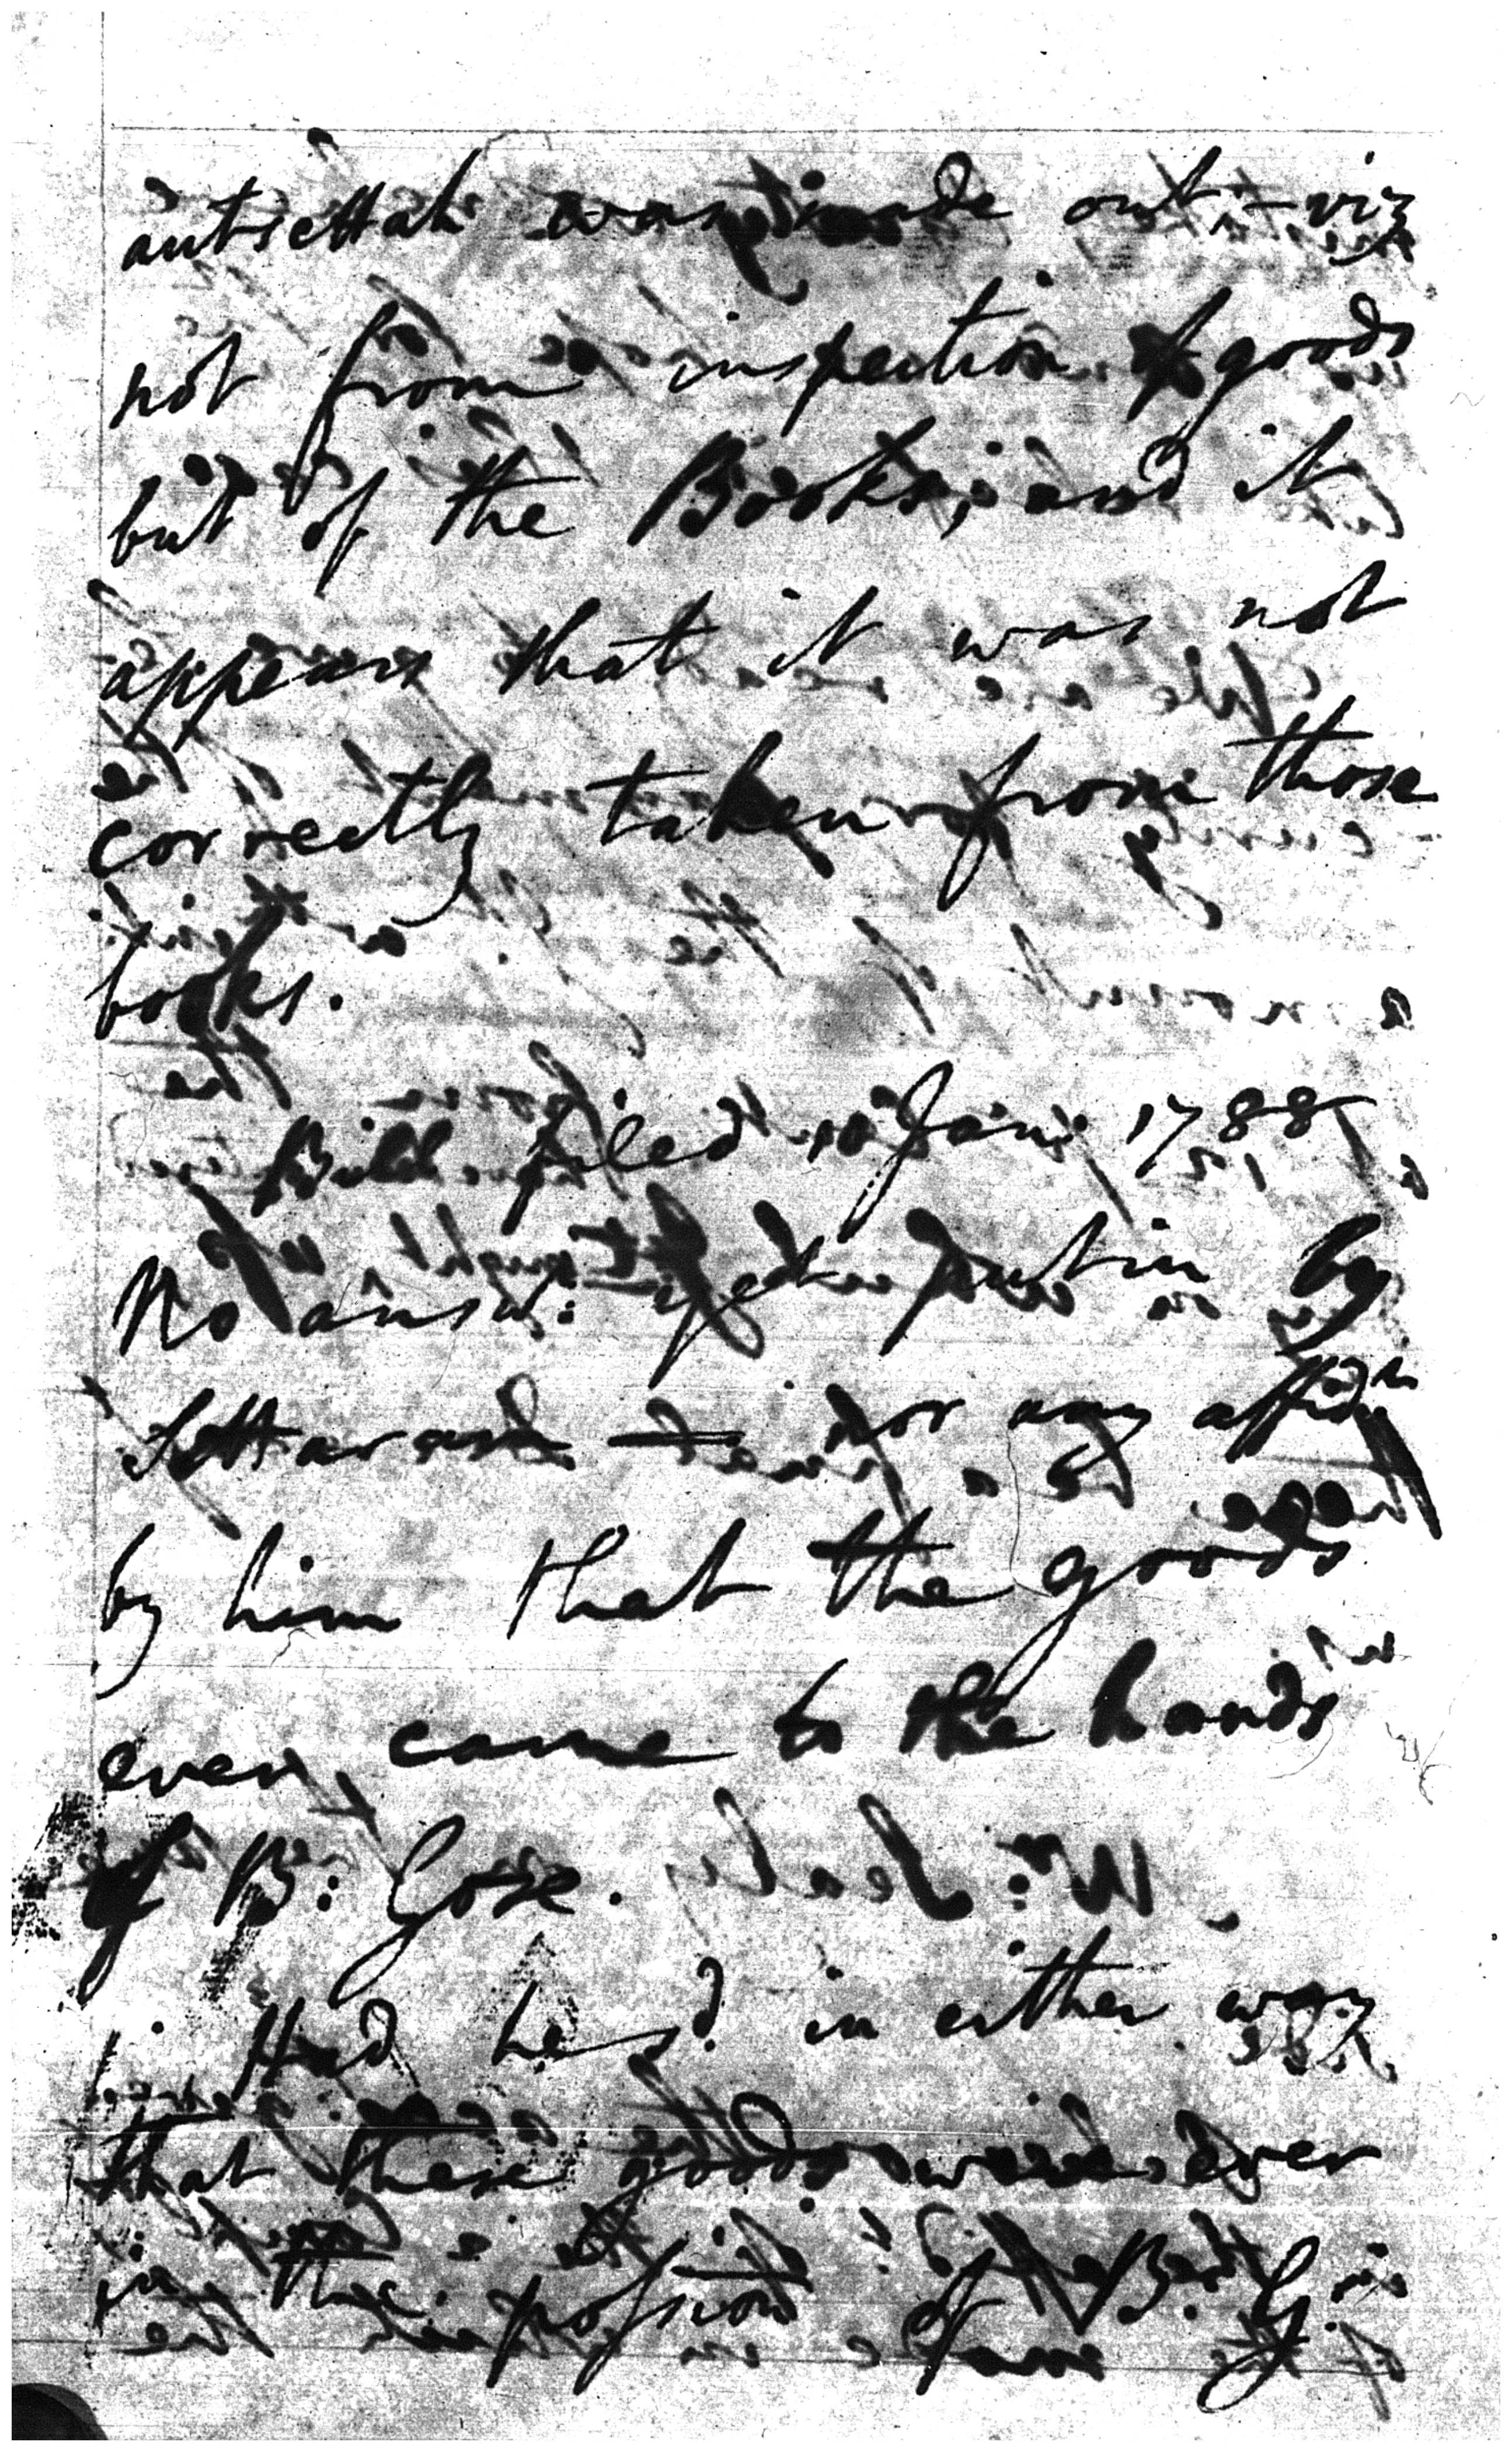 was made out :- viz
not from inspection of goods
but of the Books; and it
appears that it was not
correctly taken from those
books.
Bill filed 10 Jany 1788
No answ: yet put in by
nor any affidts
by him that the goods
ever came to the hands
of B: Gose.
Had he sd. in either way
that these goods were ever
in the possion of B. G